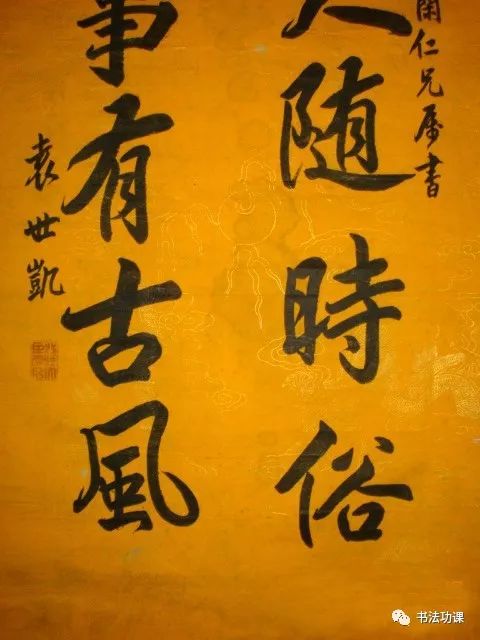 仁兄属書
人随時俗
事有古風
袁世凱
书法功课